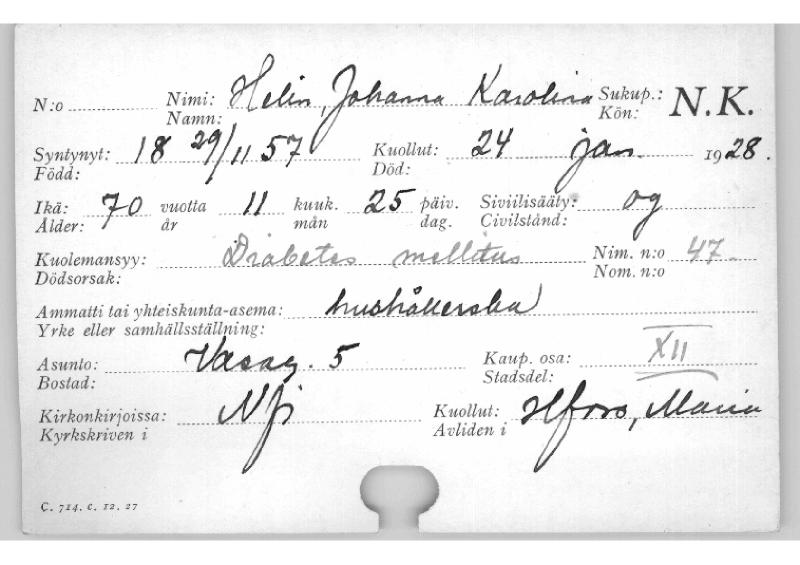 N:o Nimi: Helin, Johanna Karolina Sukup.: N.K.
Namn: Kön:
Syntynyt: 18 29/11 57 Kuollut: 24 jan. 1928.
Född: Död:
Ikä: 70 vuotta 11 kuuk. 25 päiv. Siviilisääty: og
Ålder: år mån dag. Civilstånd:
Kuolemansyy: Diabetes mellitus Nim. n:o 47.
Dödsorsak: Nom. n:o
Ammatti tai yhteiskunta-asema: hushållerska
Yrke eller samhällsställning:
Asunto: Vasag. 5 Kaup. osa: XII
Bostad: Stadsdel:
Kirkonkirjoissa: Kuollut: Hfors, Maria
Kyrkskriven i Avliden i
C. 714. c. 12. 27